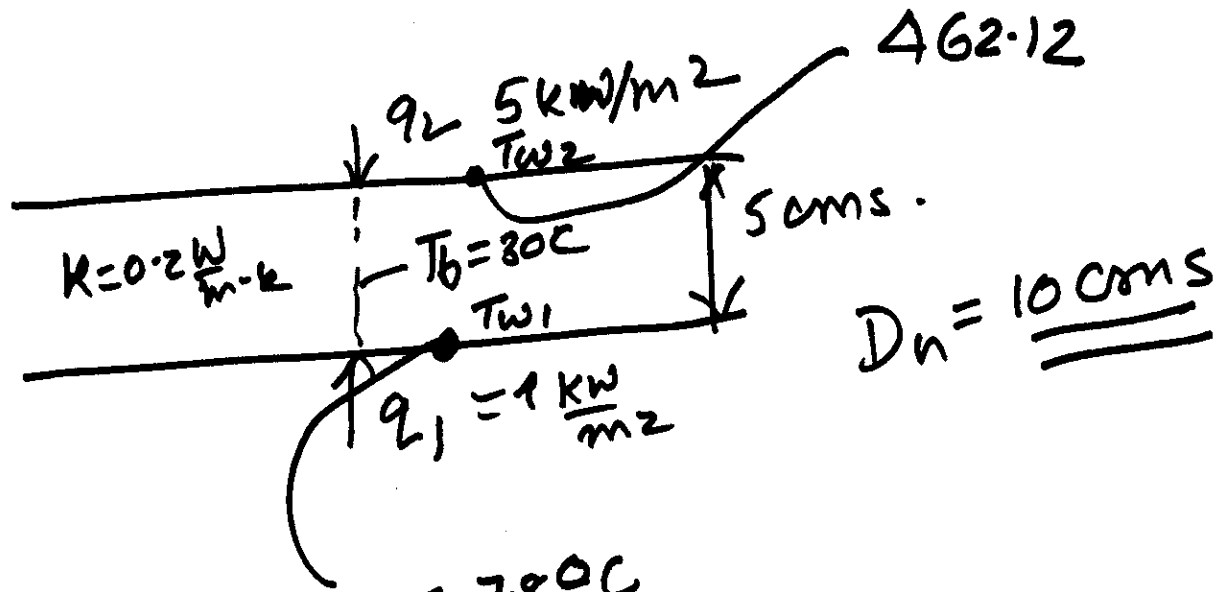 462.12
q2 5 kW/m2
Tw2
5 cms.
K=0.2 W/m-k
Tb=30C
Tw1
Dn = 10 cms
q1 = 1 kW/m2